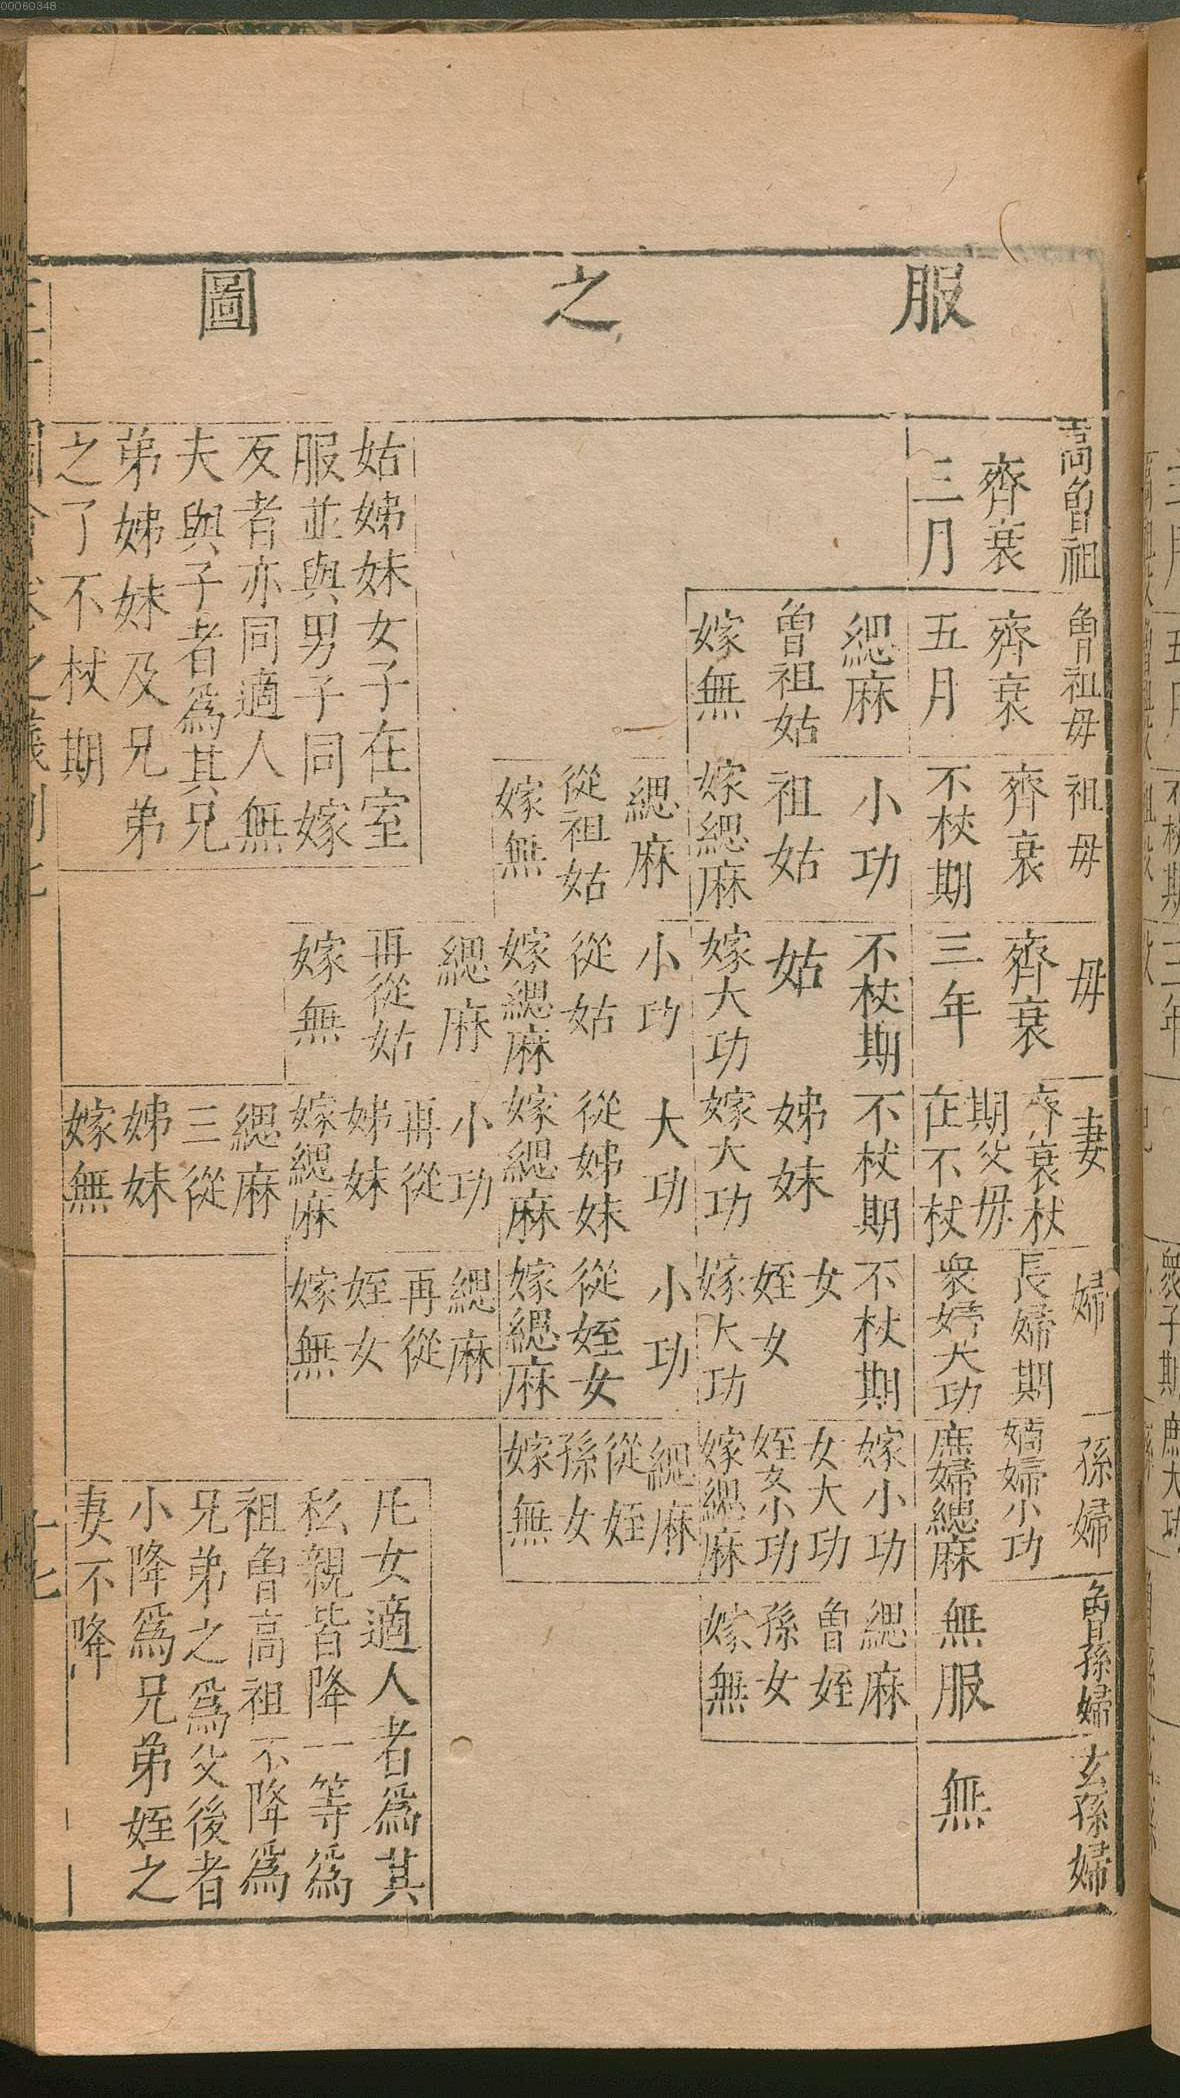 00060348
服之圖
高曾祖
齊衰
三月
曾祖母
齊衰
五月
緦麻
曾祖姑
嫁無
祖母
齊衰
不杖期
小功
祖姑
嫁緦麻
緦麻
從祖姑
嫁無
母
齊衰
三年
不杖期
姑
嫁大功
小功
從姑
嫁緦麻
緦麻
再從姑
嫁無
妻
齊衰杖
期父母
在不杖
不杖期
姊妹
嫁大功
大功
從姊妹
嫁緦麻
小功
再從
姊妹
嫁緦麻
緦麻
三從
姊妹
嫁無
婦
長婦期
衆婦大功
不杖期
女
姪女
嫁大功
小功
從姪女
嫁緦麻
緦麻
再從
姪女
嫁無
孫婦
嫡婦小功
庶婦緦麻
嫁小功
女大功
姪女小功
嫁緦麻
緦麻
從姪
孫女
嫁無
曾孫婦
無服
緦麻
曾姪
孫女
嫁無
玄孫婦
無
姑姊妹女子在室
服並與男子同嫁
反者亦同適人無
夫與子者爲其兄
弟姊妹及兄弟
之子不杖期
凡女適人者爲其
私親皆降一等爲
祖曾高祖不降爲
兄弟之爲父後者
小降爲兄弟姪之
妻不降
十七